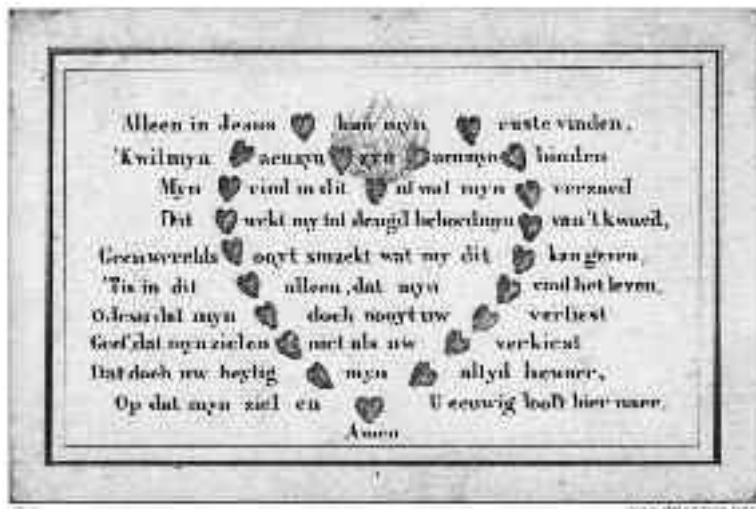 Alleen in Jesus kan myn ruste vinden,
'K wil myn aen zyn zyn aen myn binden
Myn vind in dit al wat myn
Dit wekt my tot deugd behoed myn van 't kwaed,
Geen werelds ooyt smaekt wat my dit kan geven,
'Tis in dit alleen, dat myn vind het leven,
O Jesu dat myn doch nooyt uw verliest
Geef dat myn ziel en niet als uw verkiest
Dat doch uw heylig myn altyd
Op dat myn ziel en U eeuwig looft hier naer.
Amen